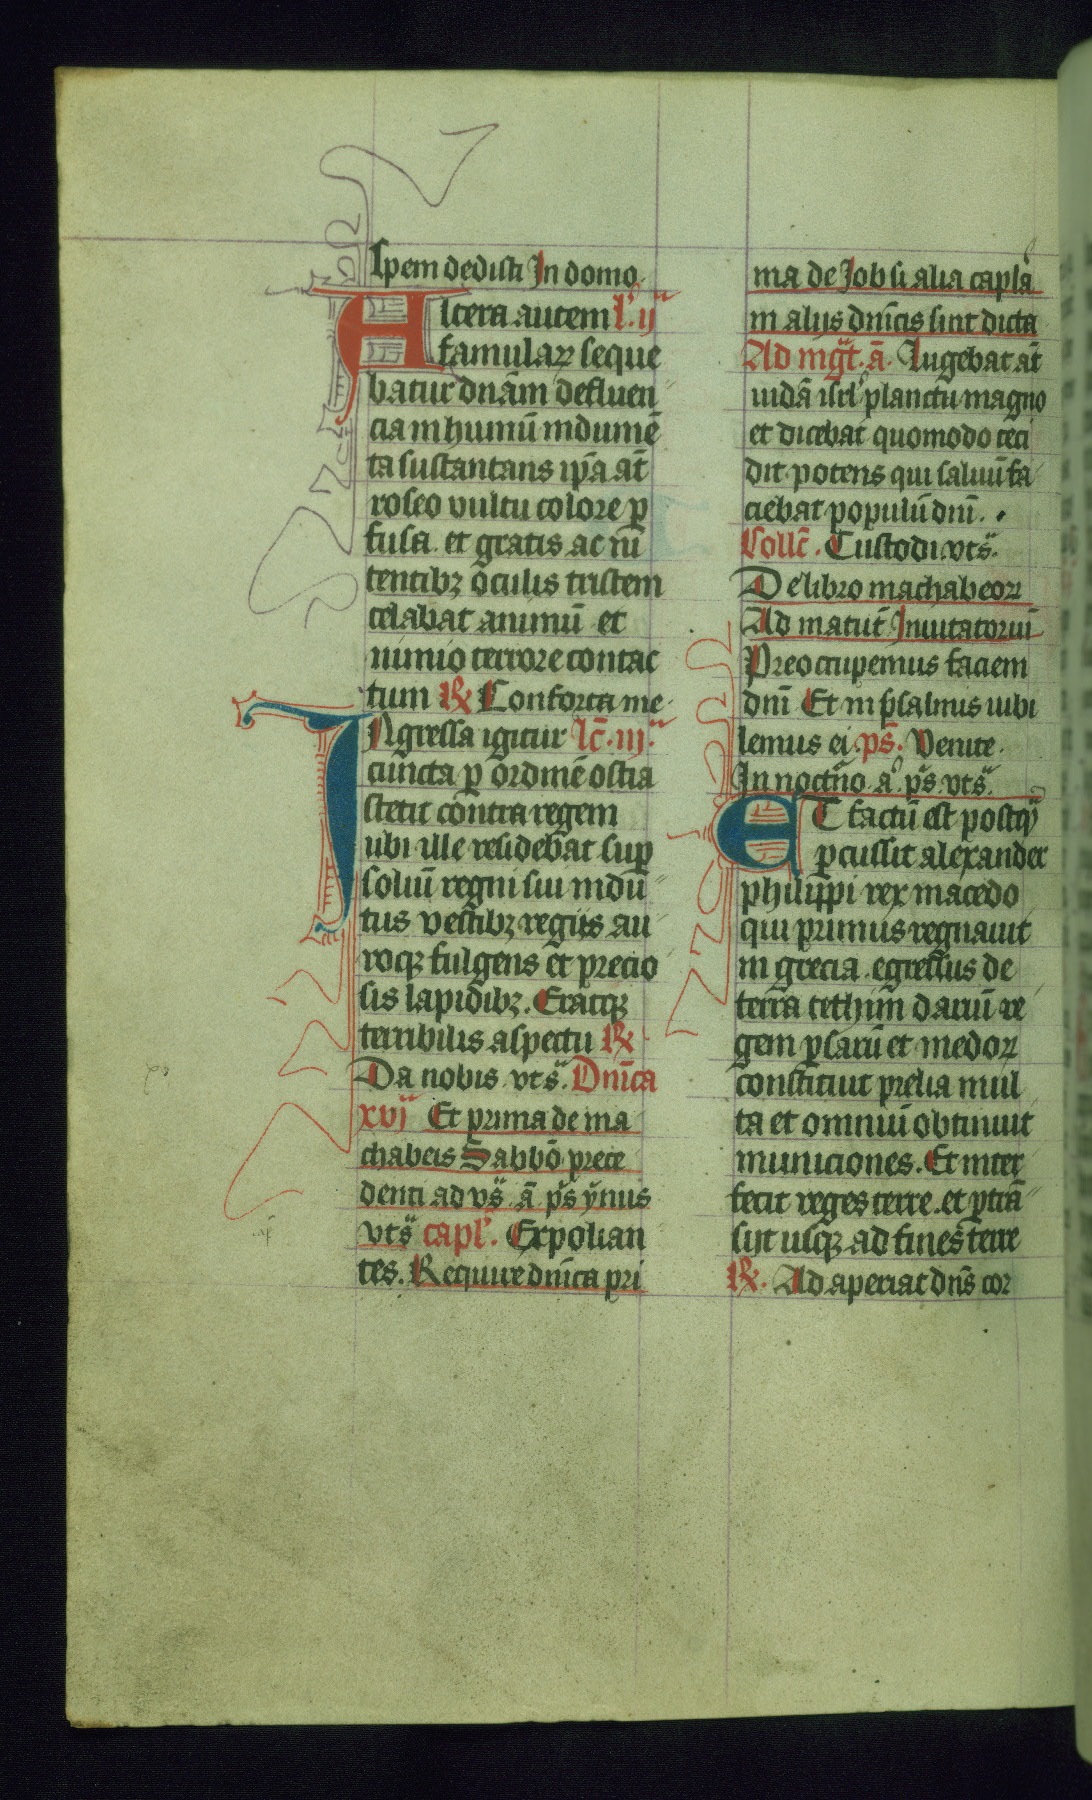 spem dedisti In domo.
Altera autem l̄. ij
famulaꝝ seque
batur dnām defluen
cia in humū indumē
ta sustantans ip̄a aūt
roseo vultu colore ꝑ
fusa. et gratis ac ni
tentibꝫ oculis tristem
celabat animū et
nimio terrore contac
tum ℟ Conforta me
INgressa igitur lc̄. iij.
cuncta ꝑ ordinē ostia
stetit contra regem
ubi ille residebat suꝑ
soliū regni sui indu
tus vestibꝫ regijs au
roqꝫ fulgens et precio
sis lapidibꝫ. Eratqꝫ
terribilis aspectu ℟
Da nobis vts̄. Dnīca
xvj Et prima de ma
chabeis Sabbō prece
denti ad vs̄. ā ps̄ ymus
vts̄ capl̄. Expolian
tes. Require dnīca pri
ma de Job si alia capla
in alijs dnīcis sint dicta
Ad mḡt. ā. Lugebat aūt
iudā isrl̄ planctu magno
et dicebat quomodo ceci
dit potens qui saluū fa
ciebat populū dnī.
Collc̄. Custodi. vts̄.
De libro machabeoꝝ
Ad matut̄ Inuitatoriū
Preoccupemus faciem
dnī Et in psalmis iubi
lemus ei. ps̄. Venite.
In noctͥno. a. ps̄. vts̄.
ET factū est postqꝫ
ꝑcussit alexander
philippi rex macedo
qui primus regnauit
in grecia. egressus de
terra cethim dariū re
gem ꝑsarū et medoꝝ
constituit prelia mul
ta et omniū obtinuit
municiones. Et inter
fecit reges terre. et ꝑtrā
sijt usqꝫ ad fines terre
℟. Ad aperiat dns̄ cor